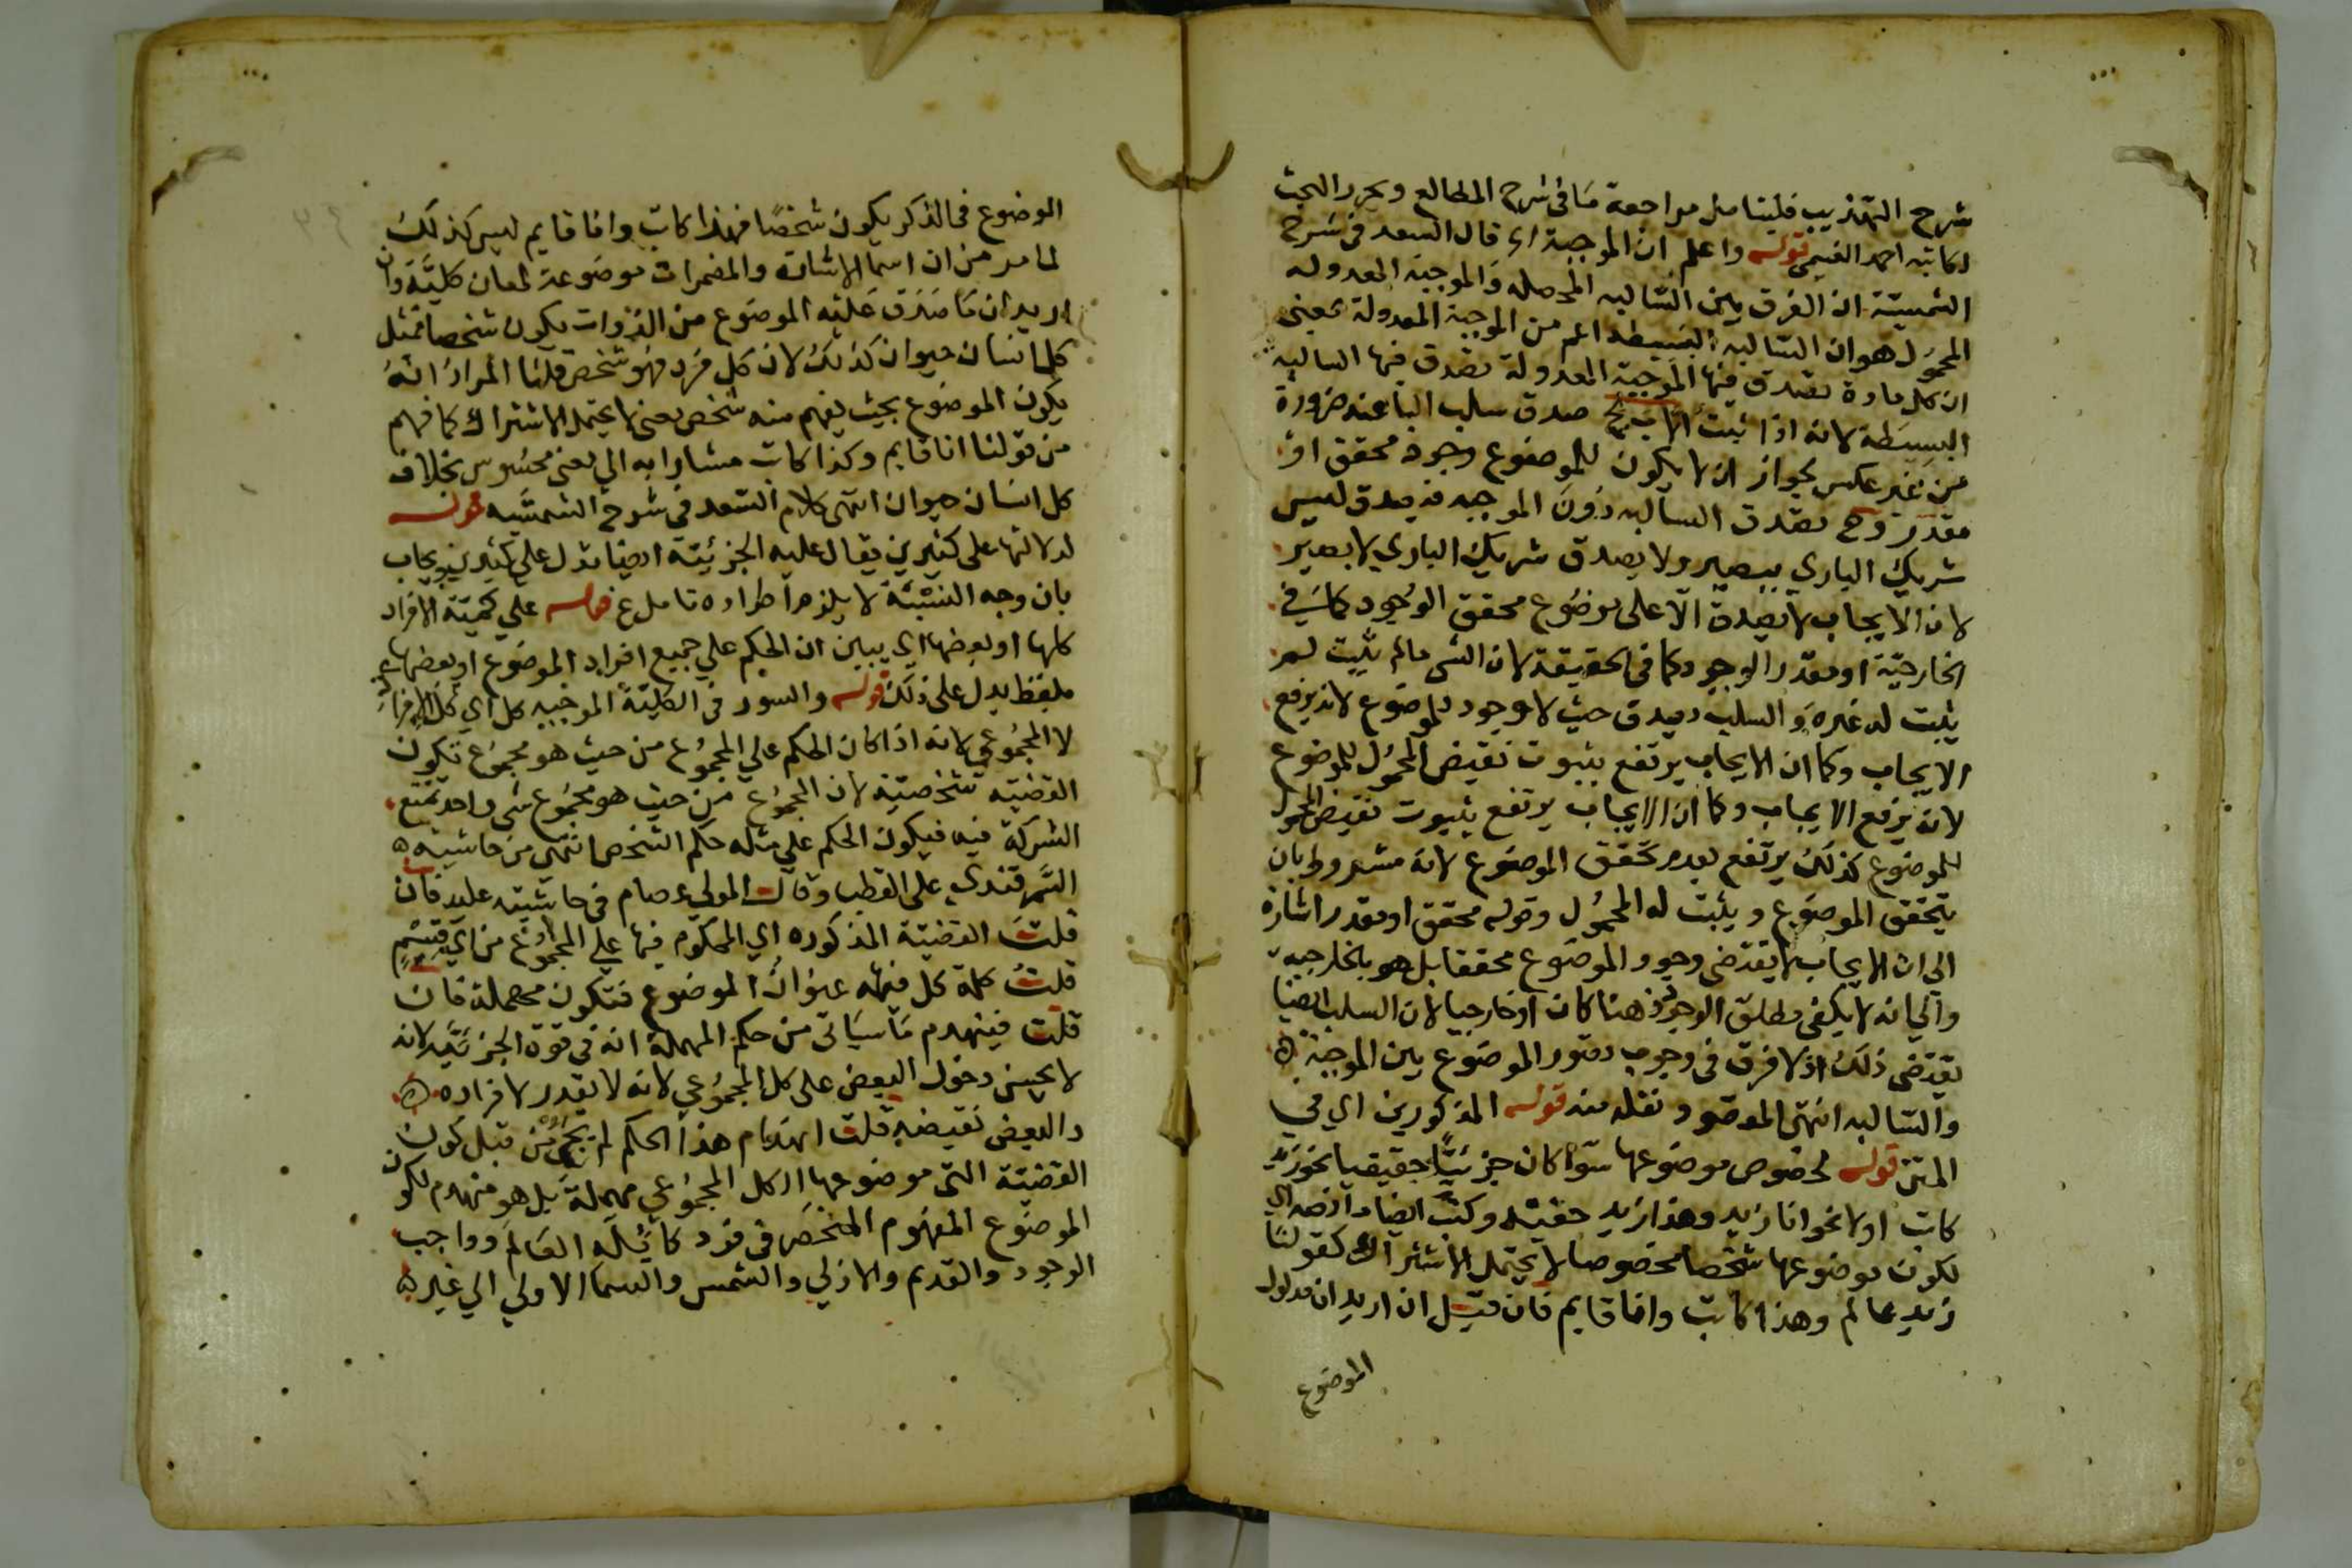 شرح التهذيب فليتامل مراجعة ما فى شرح المطالع ويحرر البحث
لكاتبه احمد الغنيمى قوله واعلم ان الموجبة اه قال السعد فى شرح
الشمسية ان الفرق بين السالبه المحصله والموجبة المعدوله
المحمول هو ان السالبه البسيطه اعم من الموجبة المعدولة بمعنى
ان كل مادة تصدق فيها الموجبة المعدولة تصدق فيها السالبه
البسيطة لانه اذا ثبت صدق سلب الباعنه ضرورة
من غير عكس لجواز ان لا يكون للموضوع وجود محقق او
مقدر وح تصدق السالبه دون الموجبه فيصدق ليس
شريك البارى ببصير ولا يصدق شريك الباري لا بصير
لان الايجاب لا يصدق الا على موضوع محقق الوجود كما فى
الخارجية او مقدر الوجود كما فى الحقيقة لان الشى مالم يثبت لم
يثبت له غيره والسلب يصدق حيث لا وجود للموضوع لانه يرفع
الايجاب وكما ان الايجاب يرتفع بثبوت نقيض المحمول للموضوع
لانه يرفع الايجاب وكما ان الايجاب يرتفع بثبوت نقيض المحمول
للموضوع كذلك يرتفع بعدم تحقق الموضوع لانه مشروط بان
يتحقق الموضوع ويثبت له المحمول وقوله محقق او مقدر اشارة
الى ان الايجاب لا يقتضى وجود الموضوع محققا بل هو بالخارجية
والي انه لا يكفى مطلق الوجود ذهنا كان او خارجيا لان السلب ايضا
يقتضى ذلك اذ لا فرق فى وجوب تصور الموضوع بين الموجبة
والسالبه انتهى المقصود نقله منه قوله المذكورين اي في
المتن قوله لخصوص موضوعها سوا كان جزئيا حقيقيا نحو زيد
كاتب اولا نحو انا زيد وهذا زيد حقيقه وكتب ايضا
لكون موضوعها شخصا مخصوصا لا يحتمل الاشتراك كقولنا
زيد عالم وهذا كاتب وانا قايم فان قيل ان اريد ان مدلول
الموضوع
الوضوع فى الذكر يكون شخصا فهذا كاتب وانا قايم ليس كذلك
لما مر من ان اسما الاشارة والمضمرات موضوعة لمعان كلية وان
اريد ان ما صدق عليه الموضوع من الذوات يكون شخصا فمثل
كل انسان حيوان كذلك لان كل فرد فهو شخص قلنا المراد انه
يكون الموضوع بحيث يفهم منه شخص معنى لا يحتمل الاشتراك كما فهم
من قولنا انا قايم وكذا كاتب مشارا به الى معنى محسوس بخلاف
كل انسان حيوان انتهى كلام السعد فى شرح الشمسيه قوله
لدلالتها على كثيرين يقال عليه الجزئية ايضا تدل علي كثيرين ويجاب
بان وجه التسمية لا يلزم اطراده تامل ع قوله علي كمية الافراد
كلها او بعضها اي يبين ان الحكم علي جميع افراد الموضوع او بعضها
بلفظ يدل على ذلك قوله والسور فى الكلية الموجبه كل اي كل الافراد
لا المجموعي لانه اذا كان الحكم علي المجموع من حيث هو مجموع تكون
القضية شخصية لان المجموع من حيث هو مجموع شى واحد تمتنع
الشركة فيه فيكون الحكم علي مثله حكم الشخص انتهى من حاشية
السمرقندي على القطب وقال المولي عصام فى حاشيته عليه فان
قلت القضية المذكوره اي المحكوم فيها علي المجموع من اي قسم
قلت كلمة كل فيها عنوان الموضوع فتكون مهملة فان
قلت فينهدم ما سياتى من حكم المهملة انه فى قوة الجزئية لانه
لا يحسن دخول البعض على كل المجموعي لانه لا تعدد لافراده
والبعض نقيضه قلت انهدام هذا الحكم لم يجئ من قبل كون
القضية التى موضوعها الكل المجموعي مهملة بل هو منهدم لكون
الموضوع المفهوم المنحصر فى فرد كاله العالم وواجب
الوجود والقديم والازلي والشمس والسما الاولي الي غيره